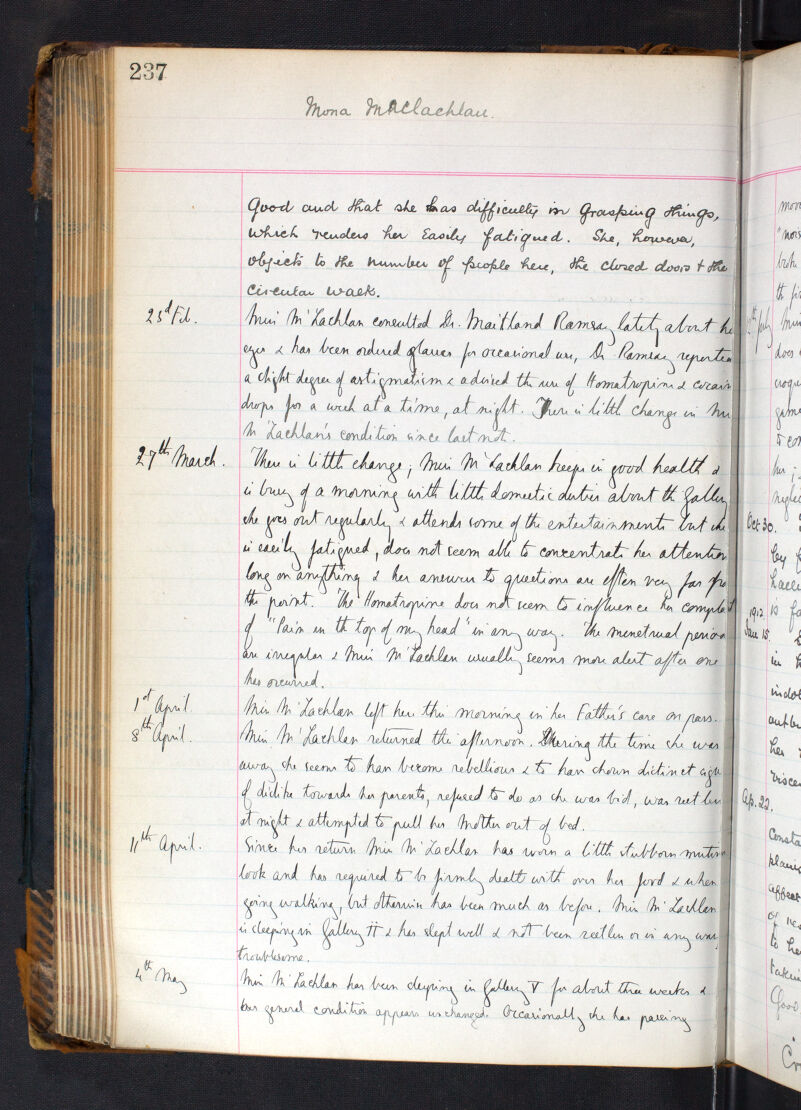 237
Mona MacLachlan.
Good and that she has difficulty in Grasping things,
which renders her Easily fatigued. She, however,
objects to the number of people here, the closed doors & the
circular walk.
23d Feb. Miss McLachlan consulted Dr. Maitland Ramsay lately about he
eyes & has been ordered glasses for occasional use, Dr Ramsay reported
a slight degree of astigmatism & advised the use of Homatropine & cocain
drops for a week at a time, at night. There is little change in Miss
McLachlan's condition since last note.
27th March. There is little change; Miss McLachlan keeps in good health &
is busy of a morning with little domestic duties about the Gallery
she goes out regularly & attends some of the entertainments but she
is easily fatigued, does not seem able to concentrate her attention
long on anything & her answers to questions are often very far fro
the point. The Homatropine does not seem to influence her complaint
of "Pain in the top of my head" in any way. The menstrual periods
are irregular & Miss McLachlan usually seems more alert after one
has occurred.
1st April Miss McLachlan left here this morning in her Father's care on pass.
8th April. Miss McLachlan returned this afternoon. During the time she was
away she seems to have become rebellious & to have shown distinct sign
of dislike towards her parents, refused to do as she was bid, was restless
at night & attempted to pull her Mother out of bed.
11th April. Since her return Miss McLachlan has worn a little stubborn
look and has required to be firmly dealt with over her food & when
going walking, but otherwise has been much as before. Miss McLachlan
is sleeping in Gallery II & has slept well & not been restless or in any way
troublesome.
4th May Miss McLachlan has been sleeping in Gallery V for about three weeks &
her general condition appears unchanged. Occasionally she has passing
July
Oct 30.
1912
Jan 15
Ap. 22.